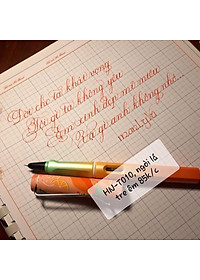 Đời cho ta khát vọng
Hỏi gì ta không yêu
Em xinh đẹp mĩ miều
Lẽ gì anh không nhớ...
HN-T010, ngòi lá
tre êm 85k/c